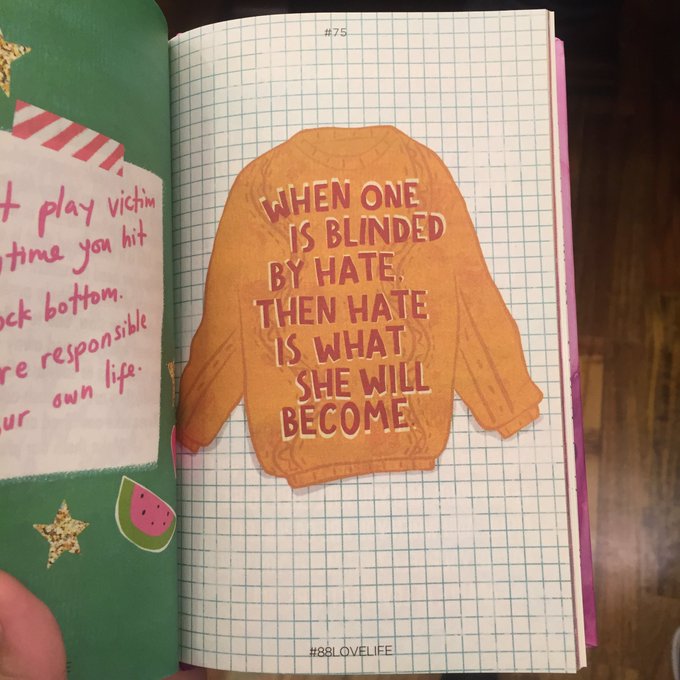 play victim
time you hit
bottom.
responsible
own life.
#75
WHEN ONE
IS BLINDED
BY HATE,
THEN HATE
IS WHAT
SHE WILL
BECOME.
#88LOVELIFE